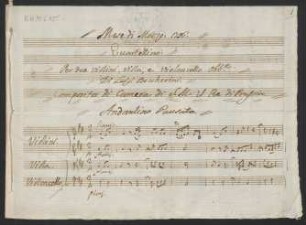 Mese di Marzo. 1786.
Quartettino
Per due violini, viola, e violoncello obb.to
Di Luigi Boccherini.
Compositor di Camera di S. M. il Re di Prussia
Andantino Pausato
Violini
Viola
Violoncello